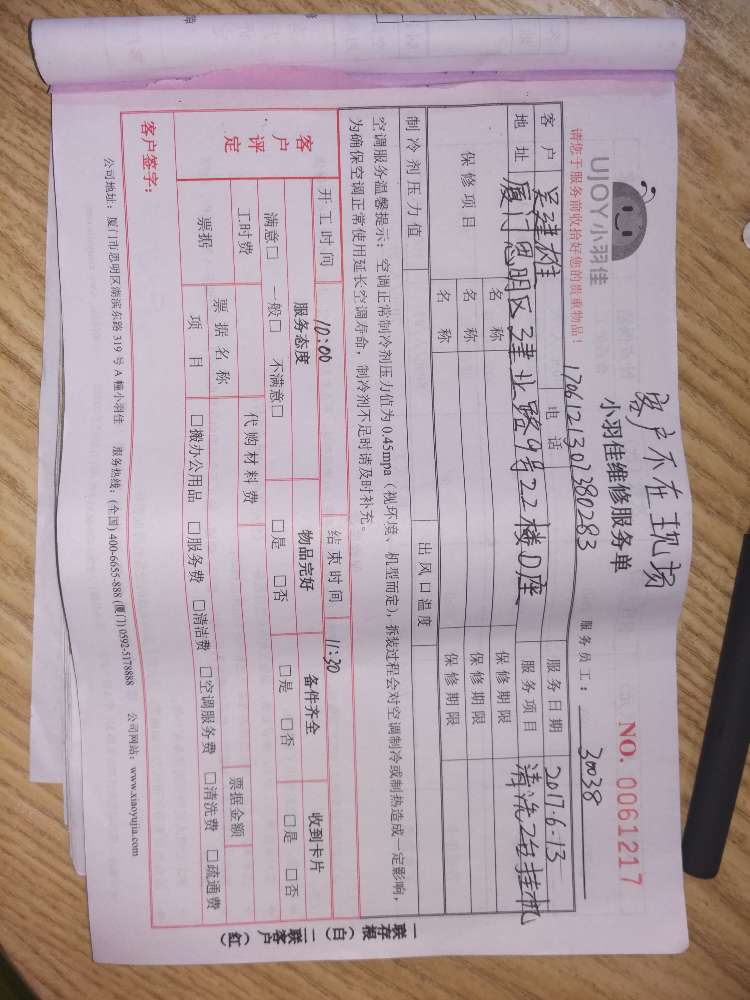 客户不在现场
UJOY小羽佳
小羽佳维修服务单
NO. 0061217
请您于服务前收拾好您的贵重物品!
服务员工: 30038
客户 吴建雄 电话 1706121307380283 服务日期 2017.6.13
地址 厦门思明区建业路9号22楼D座 服务项目 清洗2台挂机
保修项目 名称 保修期限
名称 保修期限
名称 保修期限
制冷剂压力值 出风口温度
空调服务温馨提示:空调正常制冷剂压力值为0.45mpa(视环境、机型而定),拆装过程会对空调制冷或制热造成一定影响,
为确保空调正常使用延长空调寿命,制冷剂不足时请及时补充。
开工时间 10:00 结束时间 11:30
客户评定 服务态度 物品完好 备件齐全 收到卡片
满意□ 一般□ 不满意□ □是 □否 □是 □否 □是 □否
工时费 代购材料费
票据 票据名称 票据金额
项目 □搬办公用品 □服务费 □清洁费 □空调服务费 □清洗费 □疏通费
客户签字:
公司地址:厦门市思明区湖滨东路319号A幢小羽佳 服务热线:(全国)400-6655-888(厦门)0592-5178888 公司网站:www.xiaoyujia.com
一联存根(白)二联客户(红)